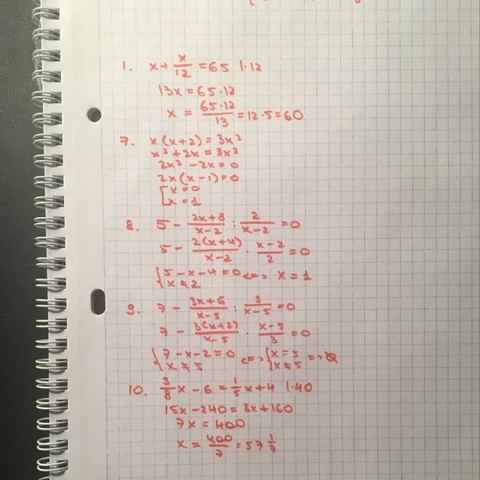 1. x + x/12 = 65 | · 12
13x = 65 · 12
x = (65 · 12)/13 = 12 · 5 = 60
7. x(x+2) = 3x²
x² + 2x = 3x²
2x² - 2x = 0
2x(x-1) = 0
[ x = 0
x = 1
8. 5 - (2x+8)/(x-2) : 2/(x-2) = 0
5 - 2(x+4)/(x-2) · (x-2)/2 = 0
{ 5 - x - 4 = 0 <=> x = 1
x ≠ 2
9. 7 - (3x+6)/(x-5) : 3/(x-5) = 0
7 - 3(x+2)/(x-5) · (x-5)/3 = 0
{ 7 - x - 2 = 0 <=> { x = 5 => ∅
x ≠ 5 x ≠ 5
10. 3/8 x - 6 = 1/5 x + 4 | · 40
15x - 240 = 8x + 160
7x = 400
x = 400/7 = 57 1/7